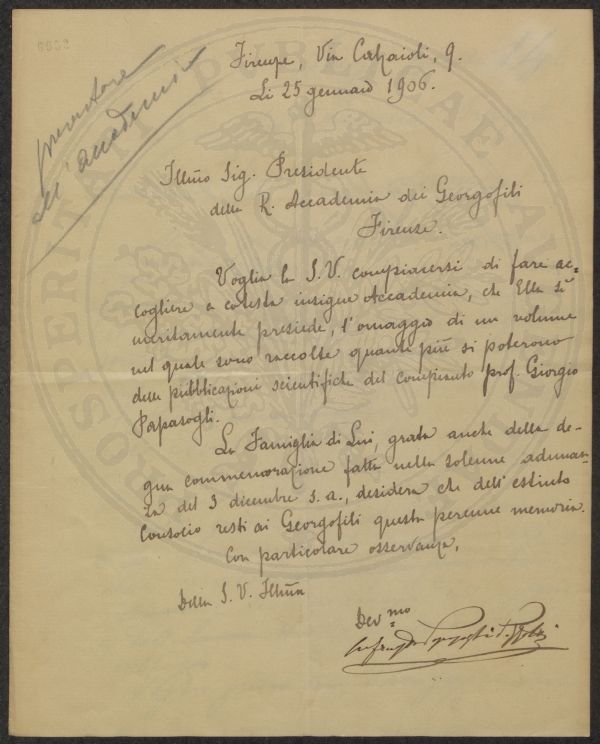 6632
presentare
all'accademia
Firenze, Via Calzaioli, 9.
Li 25 gennaio 1906.
Illmo Sig. Presidente
della R. Accademia dei Georgofili
Firenze.
Voglia la S. V. compiacersi di fare ac=
cogliere a codesta insigne Accademia, che Ella sì
meritamente presiede, l'omaggio di un volume
nel quale sono raccolte quante più si poterono
delle pubblicazioni scientifiche del compianto prof. Giorgio
Papasogli.
La Famiglia di Lui, grata anche della de-
gna commemorazione fatta nella solenne adunan-
za del 3 dicembre s. a., desidera che dell'estinto
Consocio resti ai Georgofili questa perenne memoria.
Con particolare osservanza,
Della S. V. Illma
Devmo
PROSPERITATI PUBLICAE